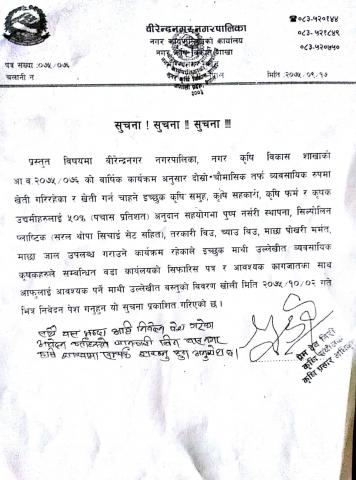 वीरेन्द्रनगर नगरपालिका
नगर कार्यपालिकाको कार्यालय
नगर कृषि विकास शाखा
☎०८३-५२१४४
०८३-५२१८४९
०८३-५२०४५०
पत्र संख्या :०७५/०७६
चलानी नं
मिति :२०७५.०९.१७
सुचना ! सुचना !! सुचना !!!
प्रस्तुत विषयमा वीरेन्द्रनगर नगरपालिका, नगर कृषि विकास शाखाको
आ व २०७५/०७६ को बार्षिक कार्यक्रम अनुसार दोस्रो चौमासिक तर्फ व्यवसायिक रुपमा
खेती गरिरहेका र खेती गर्न चाहने इच्छुक कृषि समुह, कृषि सहकारी, कृषि फर्म र कृषक
उद्यमीहरुलाई ५०% (पचास प्रतिशत) अनुदान सहयोगमा पुष्प नर्सरी स्थापना, सिल्पोलिन
प्लाष्टिक (सरल थोपा सिचाई सेट सहित), तरकारी विउ, च्याउ विउ, माछा पोखरी मर्मत,
माछा जाल उपलब्ध गराउने कार्यक्रम रहेकाले इच्छुक माथी उल्लेखीत व्यवसायिक
कृषकहरुले सम्बन्धित वडा कार्यलयको सिफारिस पत्र र आवश्यक कागजातका साथ
आफुलाई आवश्यक पर्ने माथी उल्लेखीत वस्तुको विवरण खोली मिति २०७५/१०/०२ गते
भित्र निवेदन पेश गर्नुहुन यो सुचना प्रकाशित गरिएको छ।
साथै यस भन्दा अघि निवेदन पेश गरेका
सम्पर्क
प्रेम देव गिरी